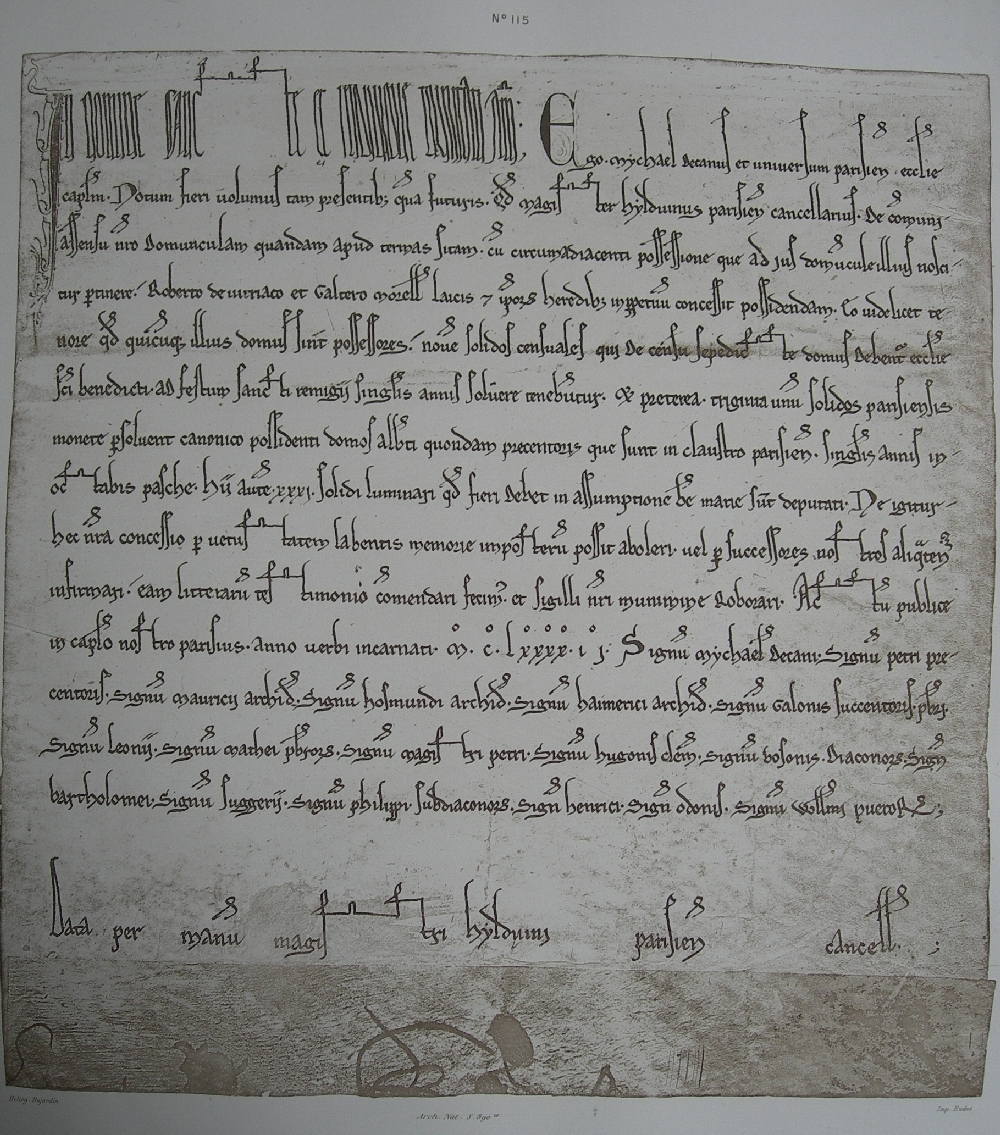 Nº 115
In nomine sancte et individue trinitatis am̃. Ego. Mychael decanus et universum parisien̄. ecclie
capl'm. Notum fieri volumus tam presentib; quā futuris. Qd̄ magister hylduinus parisien̄ cancellarius. de cōmuni
assensu nr̄o domunculam quandam apud termas sitam. cū circumadiacenti possessione que ad jus domūcule illius nosci-
tur ꝑtinere. Roberto de vitriaco et Galtero morell' laicis ⁊ ip̄oꝝ heredib; inꝑpetuū concessit possidendam. Eo videlicet te-
nore qd̄ quicūq; illius domus sint possessores. novē solidos censuales qui de censu sepedicte domus debent̄ ecclie
sc̄i benedicti. ad festum sancti remigij singl'is annis solvere tenebūtur. Et preterea. triginta unū solidos parisiensis
monete ꝑsolvent canonico possidenti domos alb̄ti quondam precentoris que sunt in claustro parisien̄. singl'is annis in
octabis pasche. Hii autē .xxxj. solidi luminari qd̄ fieri debet in assumptione bē marie sūt deputati. Ne igitur
hec nr̄a concessio ꝑ vetustatem labentis memorie imposterū possit aboleri. vel ꝑ successores nostros aliqaten̄
infirmari. eam litterarū testimonio cōmendari fecim᷒. et sigilli nr̄i munimine Roborari. Actū publice
in capl'o nostro parisius. anno verbi incarnati. M. c. lxxxx. i j. Signū mychael' decani. Signū petri pre-
centoris. Signū mauricij archid̄. Signū hosmundi archid̄. Signū haimerici archid̄. Signū Galonis succentoris. p̄brj.
Signū leonij. Signū mathei p̄bꝛoꝝ. Signū magistri petri. Signū hugonis clem̄. Signū bosonis. diaconoꝝ. Sign̄
bartholomei. Signū suggerij. Signū philippi subdiaconoꝝ. Sign̄ henrici. Sign̄ odonis. Signū will'mi pueroꝝ;
Data per manū magistri hylduini parisien̄ cancell. ;
Héliog. Dujardin
Arch. Nat. S. 890ᴮ
Imp. Eudes